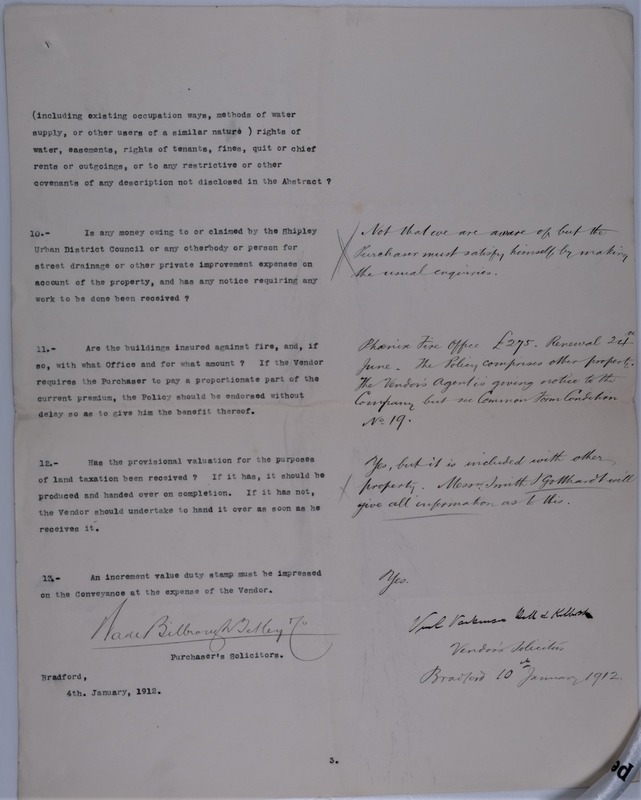 (including existing occupation ways, methods of water
supply, or other users of a similar nature ) rights of
water, easements, rights of tenants, fines, quit or chief
rents or outgoings, or to any restrictive or other
covenants of any description not disclosed in the Abstract ?
10.- Is any money owing to or claimed by the Shipley
Urban District Council or any otherbody or person for
street drainage or other private improvement expenses on
account of the property, and has any notice requiring any
work to be done been received ?
Not that we are aware of, but the
Purchaser must satisfy himself by making
the usual enquiries.
11.- Are the buildings insured against fire, and, if
so, with what Office and for what amount ? If the Vendor
requires the Purchaser to pay a proportionate part of the
current premium, the Policy should be endorsed without
delay so as to give him the benefit thereof.
Phœnix Fire Office £275. Renewal 24th
June. The Policy comprises other property.
The Vendor's Agent is giving notice to the
Company but see Common Form Condition
No 19.
12.- Has the provisional valuation for the purposes
of land taxation been received ? If it has, it should be
produced and handed over on completion. If it has not,
the Vendor should undertake to hand it over as soon as he
receives it.
Yes, but it is included with other
property. Messrs. Smith & Gotthardt will
give all information as to this.
13.- An increment value duty stamp must be impressed
on the Conveyance at the expense of the Vendor.
Yes.
Wade Bilbrough Tetley & Co
Purchaser's Solicitors.
Bradford,
4th. January, 1912.
Vendor's Solicitors
Bradford 10th January 1912.
3.